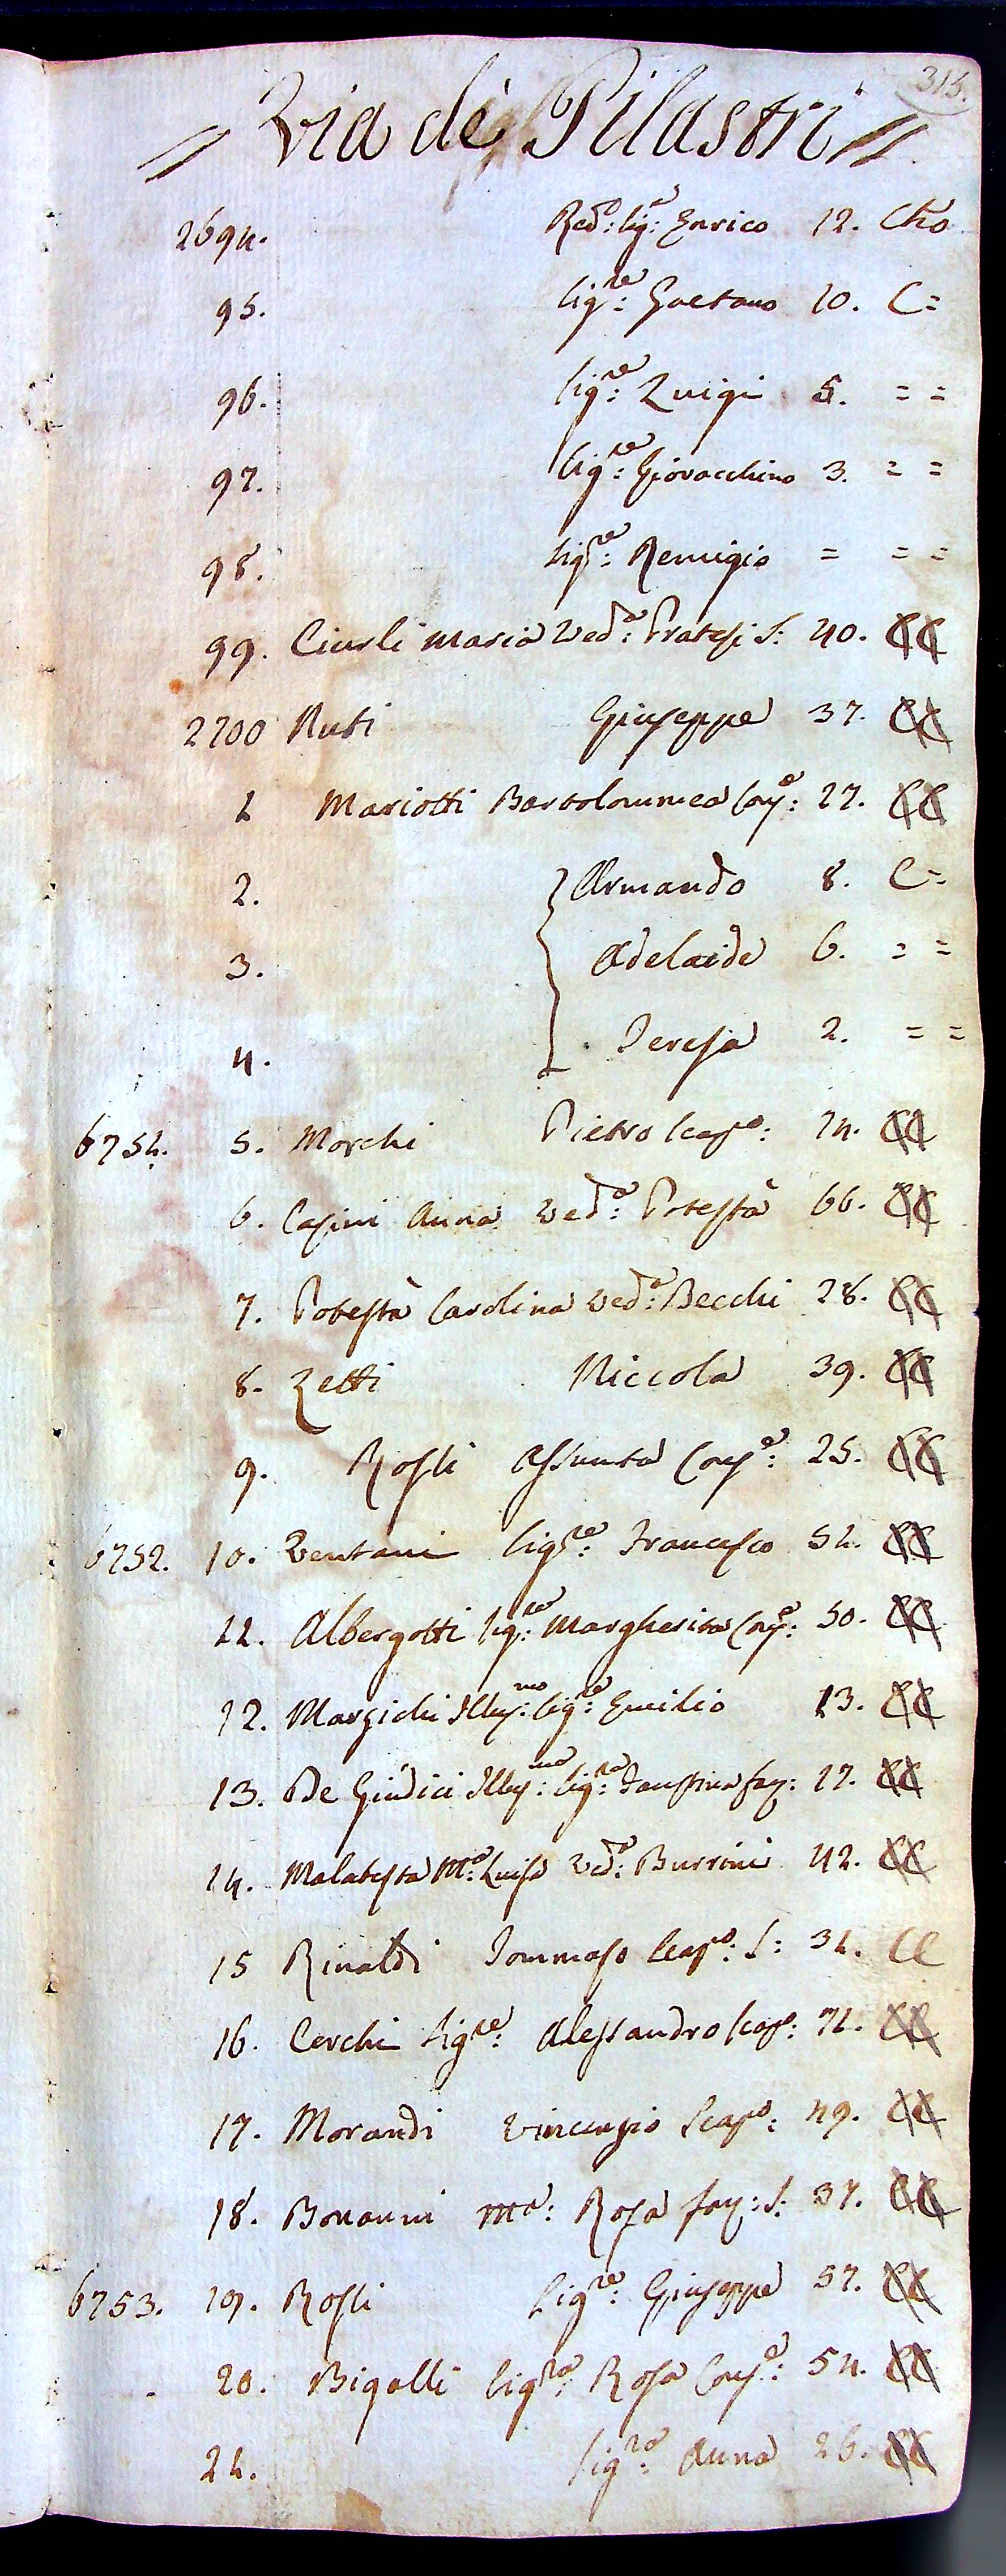 315.
// Via de' Pilastri //
2694. Red:o Sig:e Enrico 12. Cho
95. Sig:re Gaetano 10. C=
96. Sig:re Luigi 5. = =
97. Sig:re Giovacchino 3. = =
98. Sig:re Remigio = = =
99. Ciurli Maria Ved:a Pratesi S: 40. CC
2700 Ruti Giuseppe 37. CC
1 Mariotti Bartolommea Con:e 27. CC
2. Armando 8. C=
3. Adelaide 6. = =
4. Teresa 2. = =
6751. 5. Morchi Pietro Scap:o 74. CC
6. Casini Anna Ved:a Potestà 66. CC
7. Potestà Carolina Ved:a Becchi 28. CC
8. Zetti Niccola 39. CC
9. Rossi Assunta Con:e 25. CC
6752. 10. Ventani Sig:re Francesco 51. CC
11. Albergotti Sig:ra Margherita Con:e 50. CC
12. Marzichi Illus:mo Sig:re Emilio 13. CC
13. De Giudici Illus:ma Sig:ra Faustina fan: 17. CC
14. Malatesta M:a Luisa Ved:a Burrini 42. CC
15 Rinaldi Tommaso Scap:o S: 31. CC
16. Cerchi Sig:re Alessandro Scap: 71. CC
17. Morandi Vincenzio Scap:o 49. CC
18. Bonanni Ma: Rosa fan: S: 37. CC
6753. 19. Rossi Sig:re Giuseppe 57. CC
20. Bigalli Sig:ra Rosa Con:e 54. CC
21. Sig:ra Anna 26. CC